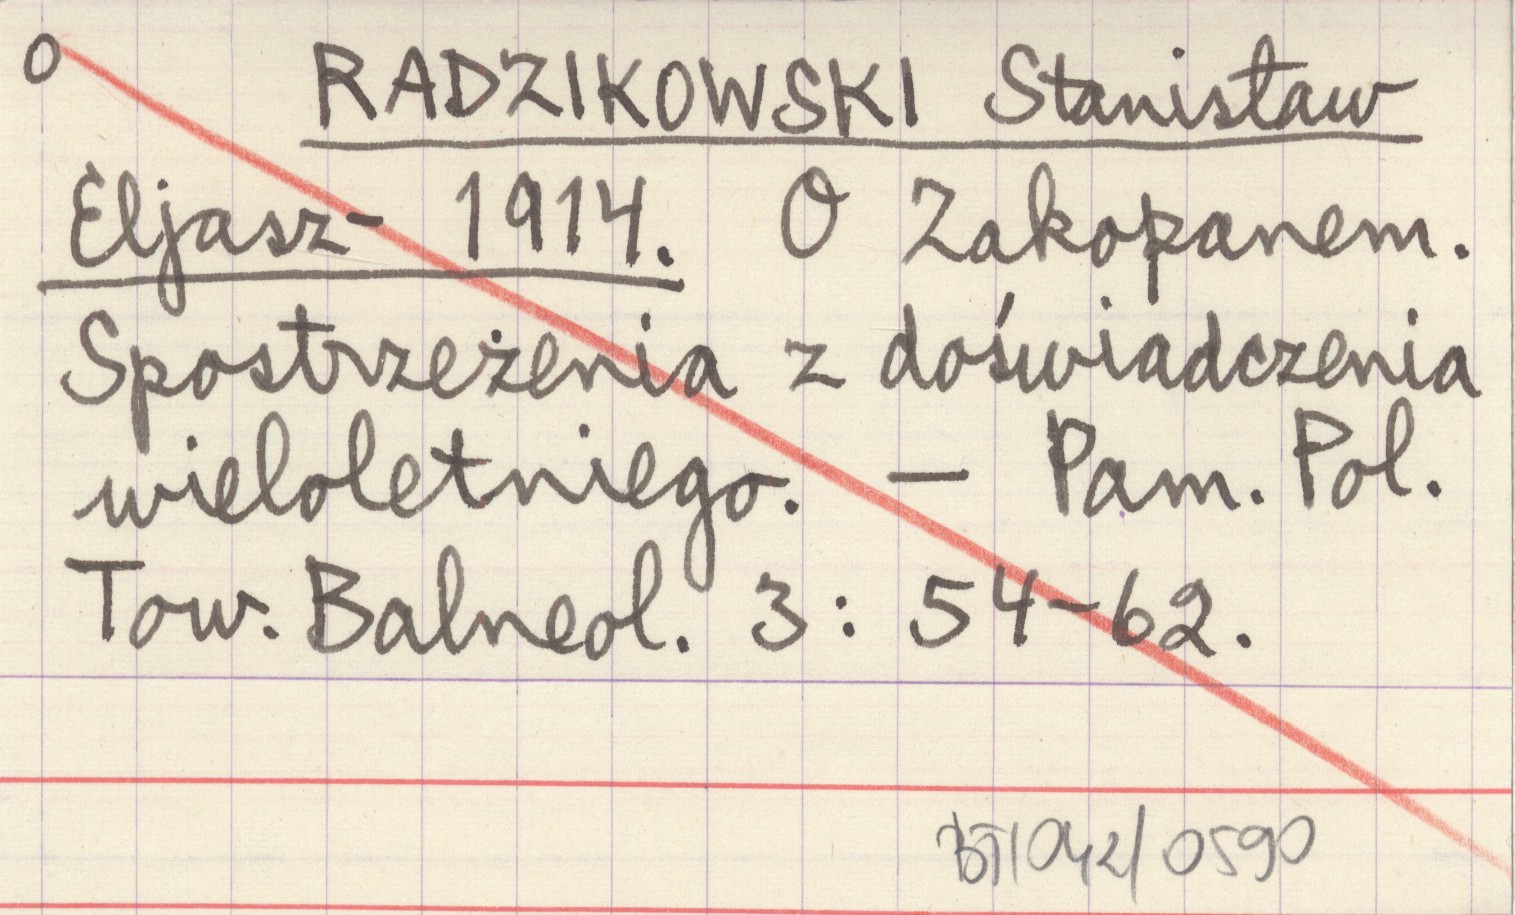 O RADZIKOWSKI Stanisław
Eljasz- 1914. O Zakopanem.
Spostrzeżenia z doświadczenia
wieloletniego. — Pam. Pol.
Tow. Balneol. 3: 54-62.
BT1042/0590